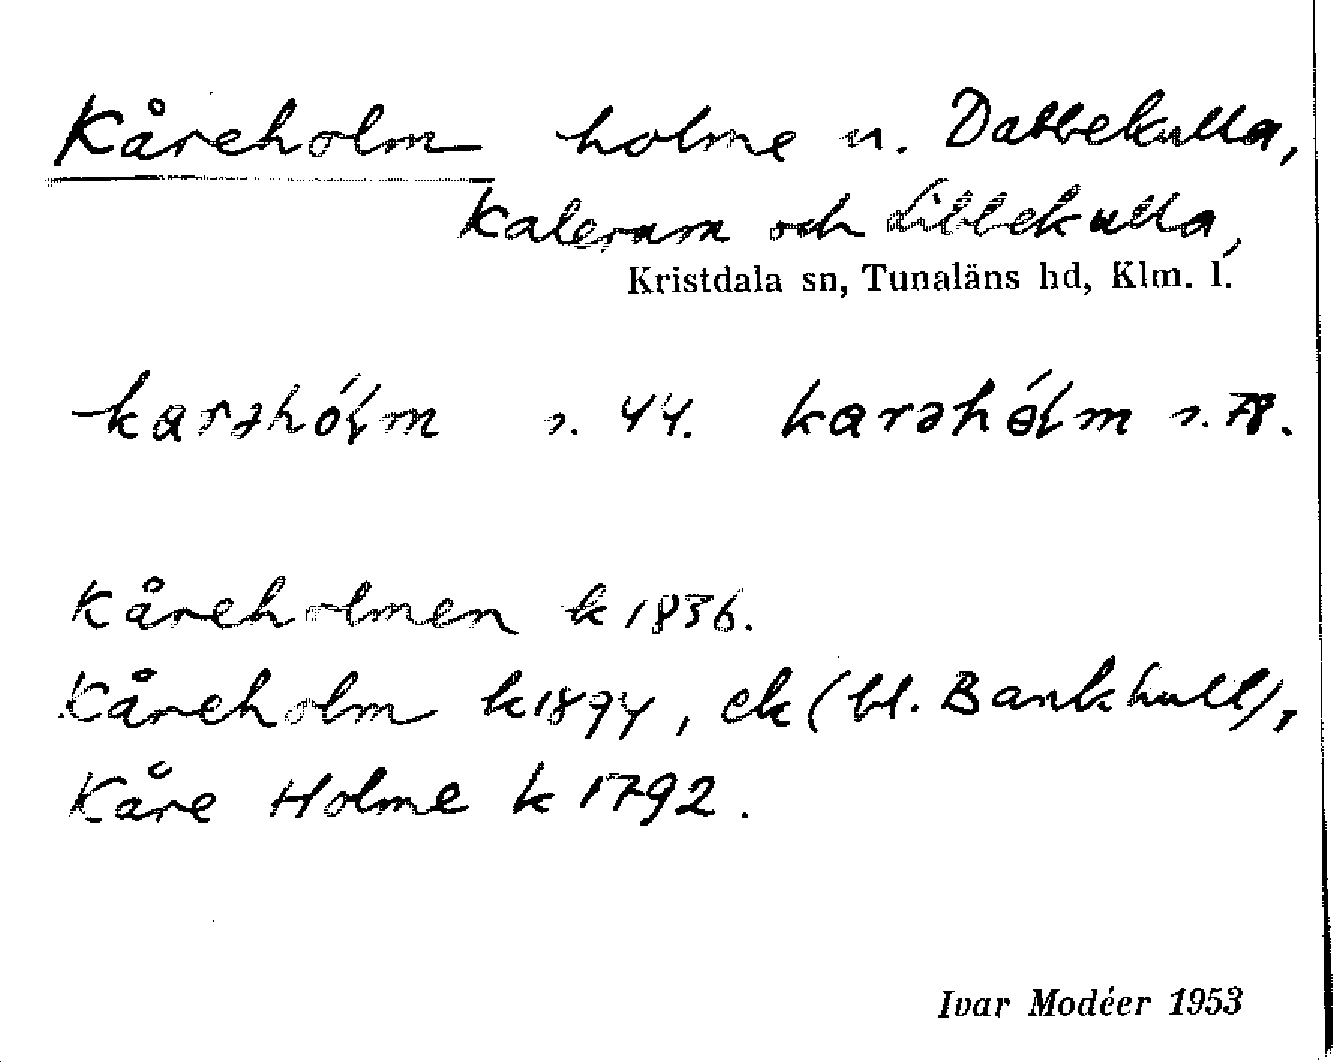 Kåreholm holme u. Dabbekulla,
Kalerum och Libbekulla,
Kristdala sn, Tunaläns hd, Klm. l.
karəhólm s. 44. karəhólm s. 78.
Kåreholmen k 1836.
Kåreholm k 1894, ek (bl. Bankhult),
Kåre Holme k 1792.
Ivar Modéer 1953